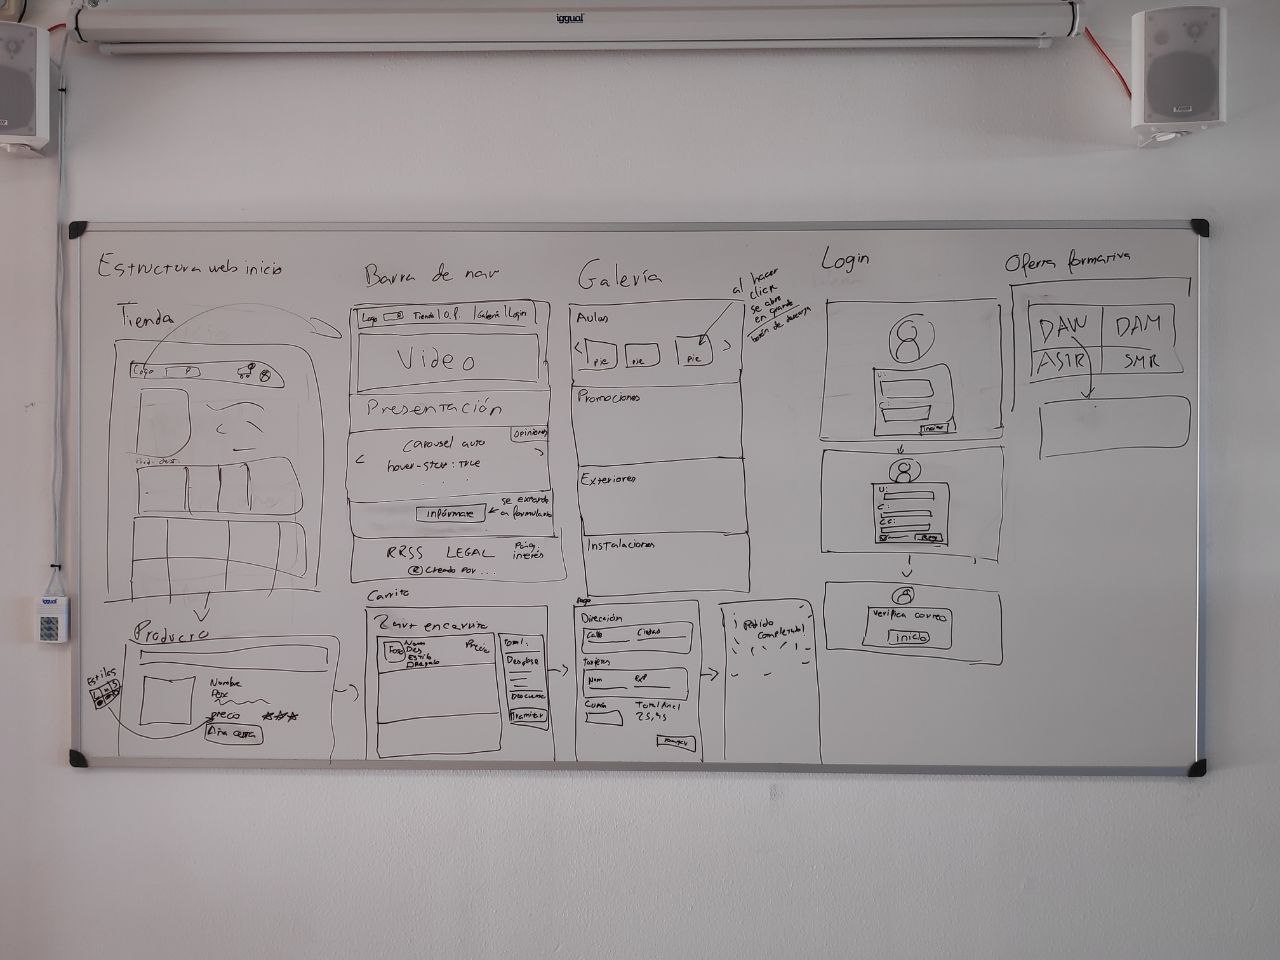 iggual
Estructura web inicio
Tienda
Logo
Prod. dest.
Producto
Estilos
L M S
Nombre
precio
Barra de nav
Logo Tienda O.f. Galería Login
Video
Presentación
Opiniones
carousel auto
hover-stop: true
infórmate
se expande
a formulario
RRSS LEGAL Pág. interés
® Creado por ...
Carrito
en carrito
Foto
Nom
Des
Estilo
Precio
Total:
Desglose
Descuento
Tramitar
Galería
al hacer
click
se abre
en grande
botón de descarga
Aulas
pie pie pie
Promociones
Exteriores
Instalaciones
Pago
Dirección
Calle Ciudad
Tarjeta
Nom Exp
Cupón Total final
25,45
¡Pedido
completado!
Login
U:
C:
Iniciar
U:
C:
CC:
Reg
Verifica correo
inicio
Oferta formativa
DAW DAM
ASIR SMR
iggual